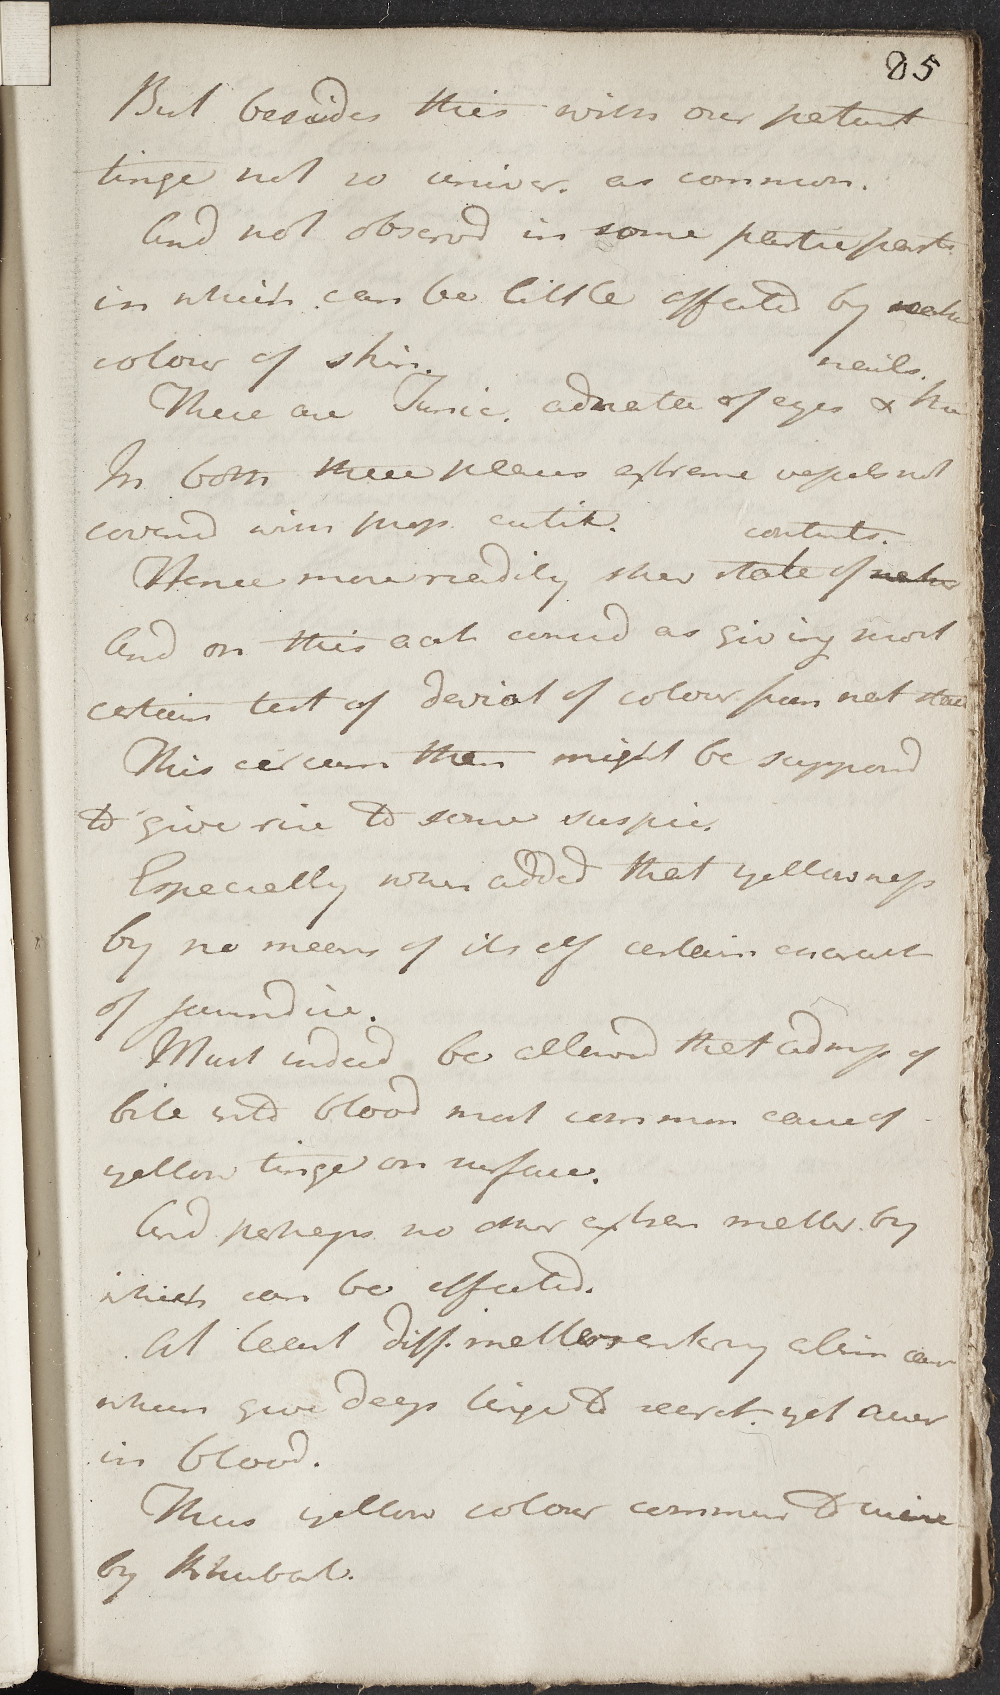 85
But besides this with our patient
tinge not so univer. as common.
And not observd in some particu parts
in which can be little affected by
colour of skin.
nails.
There are Tunic. adnata of eyes &
In both these places extreme vessels not
coverd with prop. cutik.
contents.
Hence more readily shew state of
And on this acct considd as giving most
certain test of deviat of colour from nat state
This circum then might be supposd
to give rise to some suspic.
Especially when added that yellowness
by no means of itself certain charact
of jaundice.
Must indeed be allowd that admiss of
bile into blood most common cause of
yellow tinge on surface.
And perhaps no other extran matter by
which can be effected.
At least diff. matters entering alim can
which give deep tinge to secret. yet never
in blood.
Thus yellow colour commun to urine
by Rhubarb.